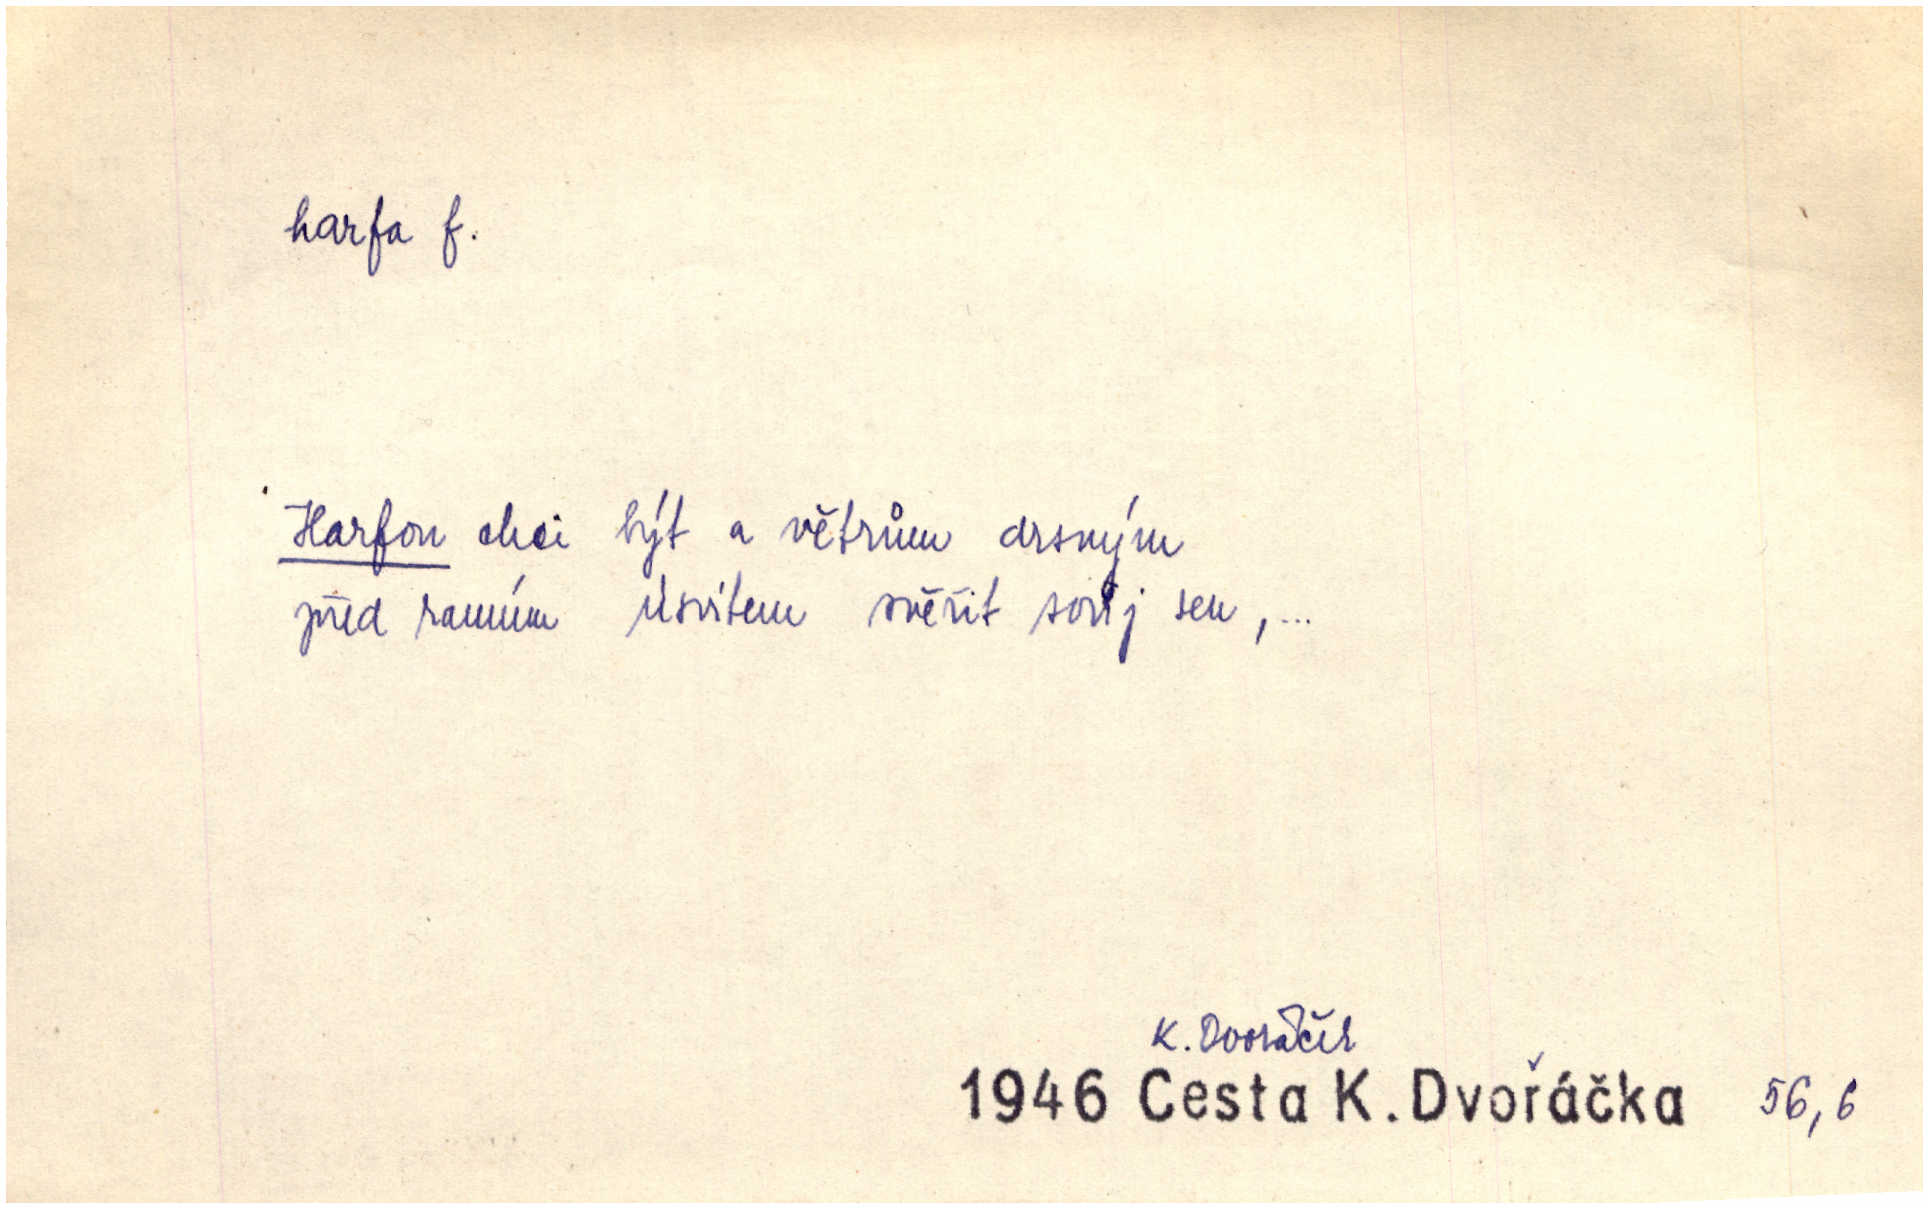 harfa f.
Harfou chci být a větrům drsným
před ranním úsvitem svěřit svůj sen, ...
K. Dvořáček
1946 Cesta K. Dvořáčka 56,6